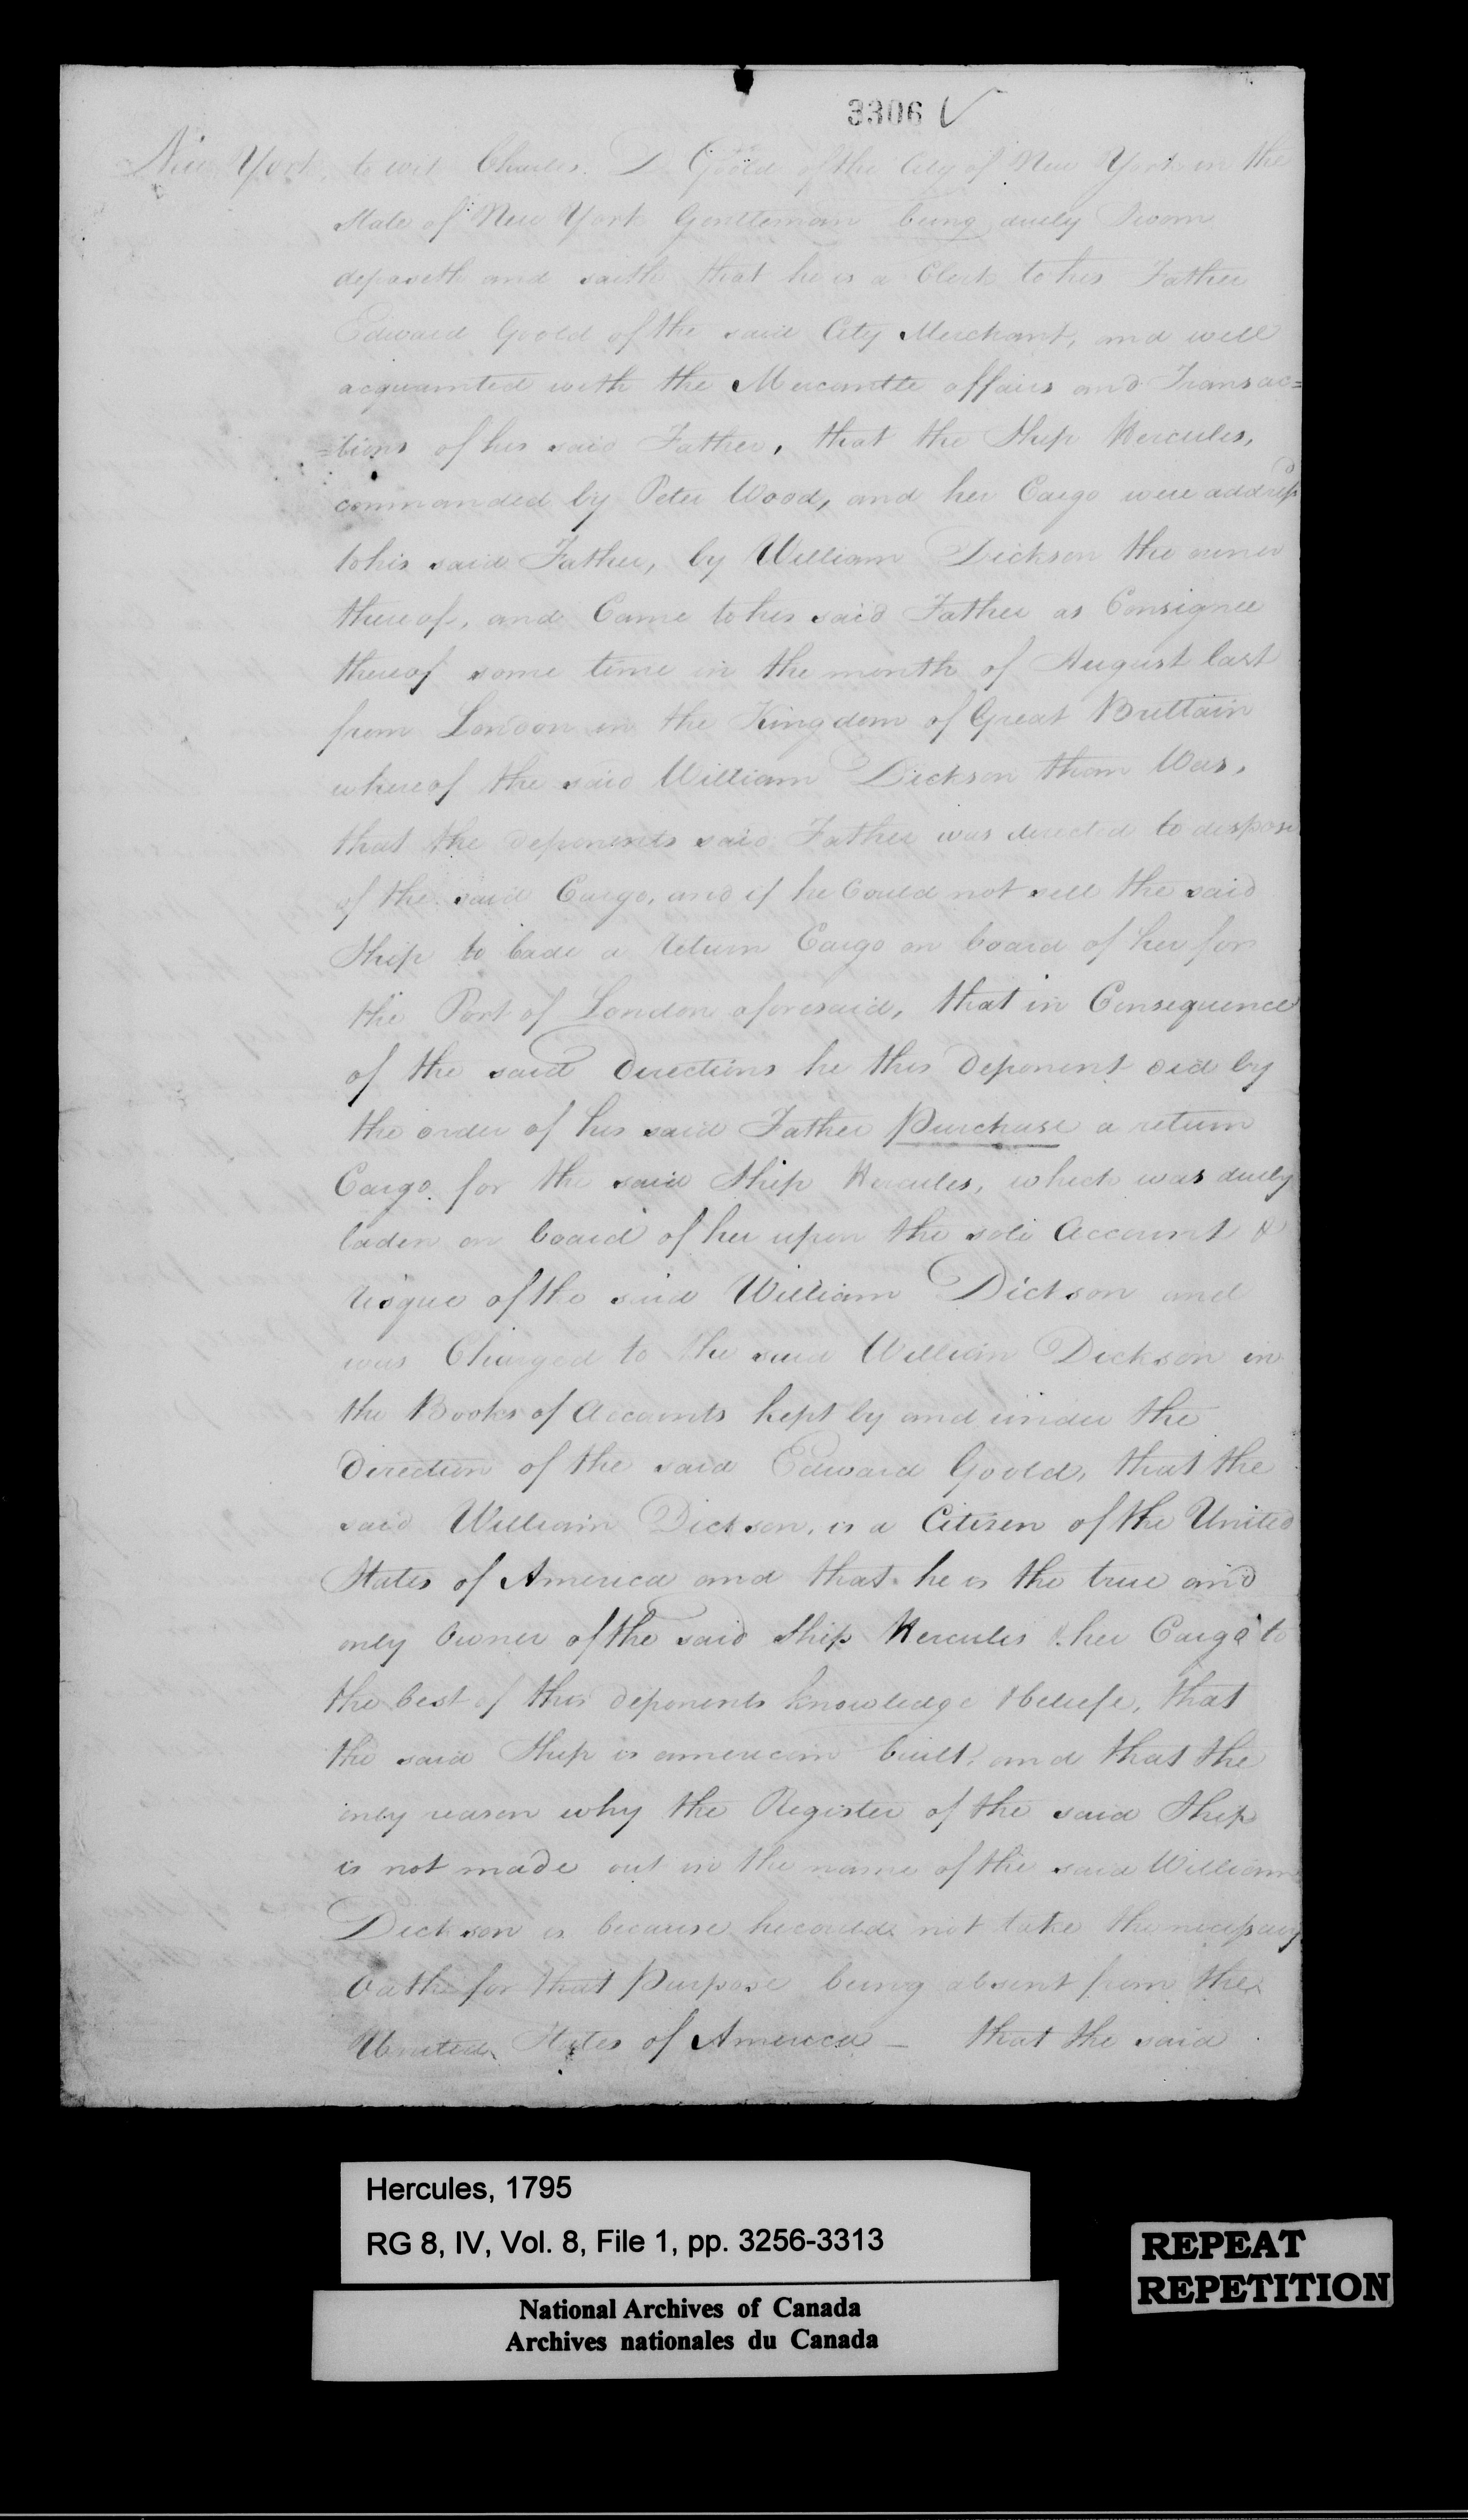 3306
New York, to wit Charles D. Goold of the City of New York in the
State of New York Gentleman being duely Sworn
deposeth and saith that he is a Clerk to his Father
Edward Goold of the said City Merchant, and well
acquainted with the Mercantile affairs and Transac=
=tions of his said Father, that the Ship Hercules,
commanded by Peter Wood, and her Cargo were address
to his said Father, by William Dickson the owner
thereof, and Came to his said Father as Consignee
thereof some time in the month of August last
from London in the Kingdom of Great Brittain
whereof the said William Dickson then Was,
that the deponents said Father was directed to dispose
of the said Cargo, and if he Could not sell the said
Ship to lade a return Cargo on board of her for
the Port of London aforesaid, that in Consequence
of the said Directions he this Deponent did by
the order of his said Father Purchase a return
Cargo for the said Ship Hercules, which was duely
laden on board of her upon the sole Account &
risque of the said William Dickson and
was Charged to the said William Dickson in
the Books of Accounts kept by and under the
Direction of the said Edward Goold, that the
said William Dickson, is a Citizen of the United
States of America and that he is the true and
only Owner of the said Ship Hercules & her Cargo to
the best of this deponents knowledge & beliefe, that
the said Ship is american built, and that the
only reason why the Register of the said Ship
is not made out in the name of the said William
Dickson is because he could not take the necessary
Oath for that Purpose being absent from the
United States of America — that the said
Hercules, 1795
RG 8, IV, Vol. 8, File 1, pp. 3256-3313
National Archives of Canada
Archives nationales du Canada
REPEAT
REPETITION